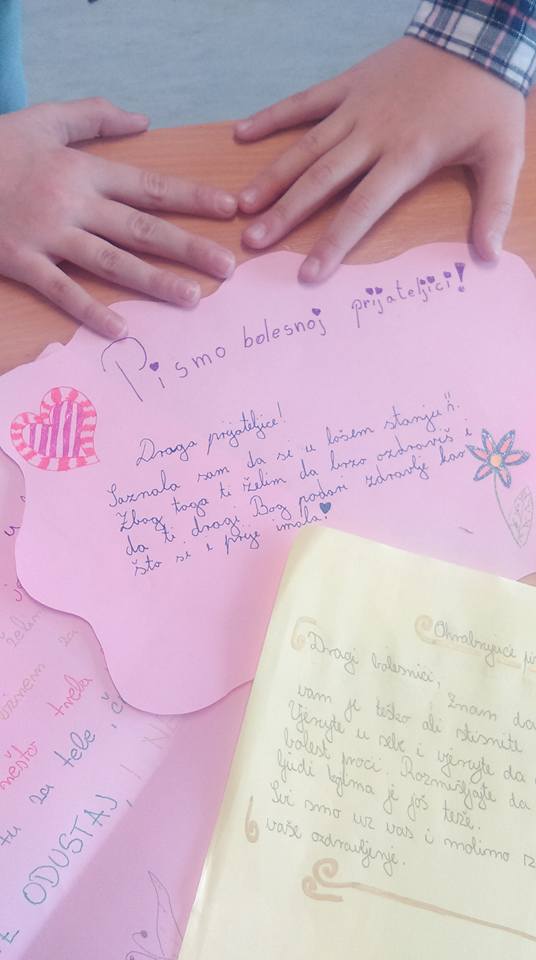 Pismo bolesnoj prijateljici!
Draga prijateljice!
Saznala sam da si u lošem stanju".
Zbog toga ti želim da brzo ozdraviš i
da ti dragi Bog podari zdravlje kao
što si i prije imala.
Ohrabrujuće
Dragi bolesnici, Znam da
vam je teško ali stisnite
Vjerujte u sebe i vjerujte da
bolest proći. Razmišljajte da
ljudi kojima je još teže.
Svi smo uz vas i molimo
vaše ozdravljenje.
želim
nešto treba
tu za tebe
ODUSTAJ